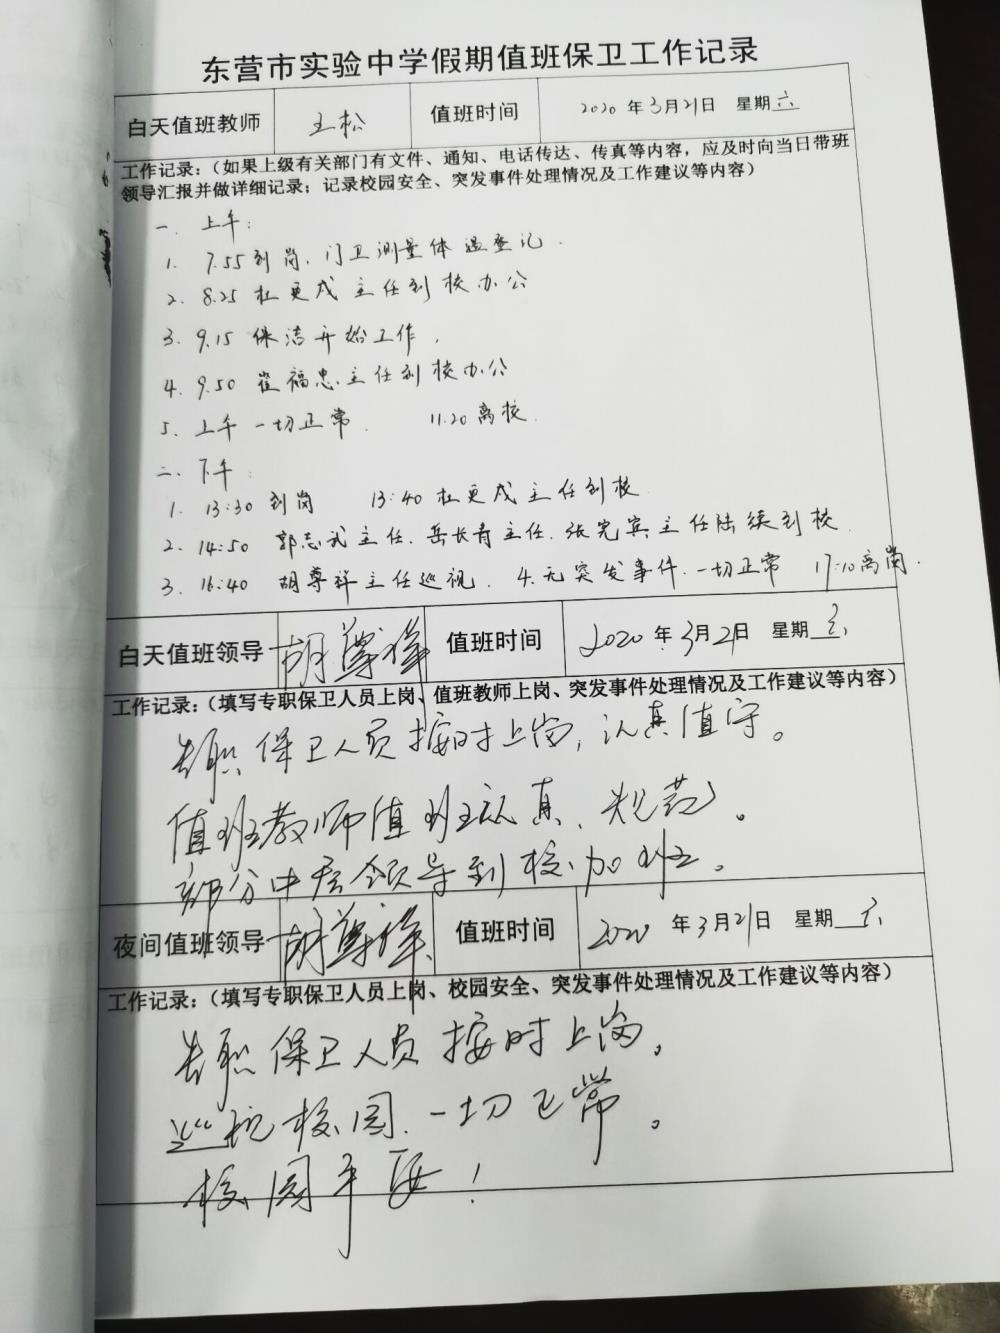 东营市实验中学假期值班保卫工作记录
白天值班教师 王松 值班时间 2020年3月21日 星期六
工作记录：（如果上级有关部门有文件、通知、电话传达、传真等内容，应及时向当日带班
领导汇报并做详细记录；记录校园安全、突发事件处理情况及工作建议等内容）
一、上午：
1. 7.55到岗，门卫测量体温登记.
2. 8.25 杜更成主任到校办公
3. 9.15 保洁开始工作，
4. 9.50 崔福忠主任到校办公
5. 上午一切正常. 11.20离校.
二、下午：
1. 13:30到岗 13:40 杜更成主任到校
2. 14:50 郭志武主任.岳长青主任.张宪宾主任陆续到校.
3. 16:40 胡尊祥主任巡视. 4.无突发事件.一切正常 17:10离岗.
白天值班领导 胡尊祥 值班时间 2020年3月21日 星期六
工作记录：（填写专职保卫人员上岗、值班教师上岗、突发事件处理情况及工作建议等内容）
专职保卫人员按时上岗，认真值守。
值班教师值班认真、规范。
部分中层领导到校加班。
夜间值班领导 胡尊祥 值班时间 2020年3月21日 星期六
工作记录：（填写专职保卫人员上岗、校园安全、突发事件处理情况及工作建议等内容）
专职保卫人员按时上岗。
巡视校园.一切正常。
校园平安！